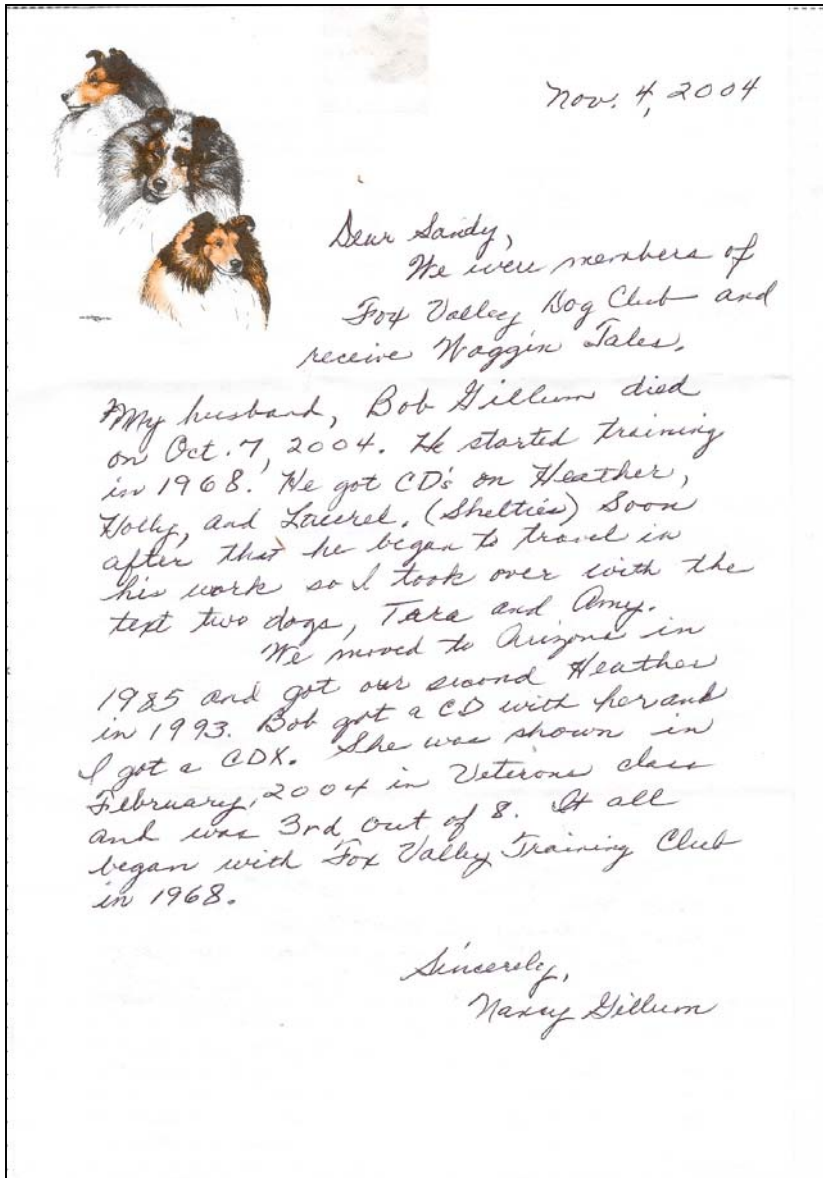 Nov. 4, 2004
Dear Sandy,
We were members of
Fox Valley Dog Club and
receive Waggin Tales.
My husband, Bob Gillum died
on Oct. 7, 2004. He started training
in 1968. He got CD's on Heather,
Holly, and Laurel. (Shelties) Soon
after that he began to travel in
his work so I took over with the
text two dogs, Tara and Amy.
We moved to Arizona in
1985 and got our second Heather
in 1993. Bob got a CD with her and
I got a CDX. She was shown in
February, 2004 in Veterans class
and was 3rd out of 8. It all
began with Fox Valley Training Club
in 1968.
Sincerely,
Nancy Gillum